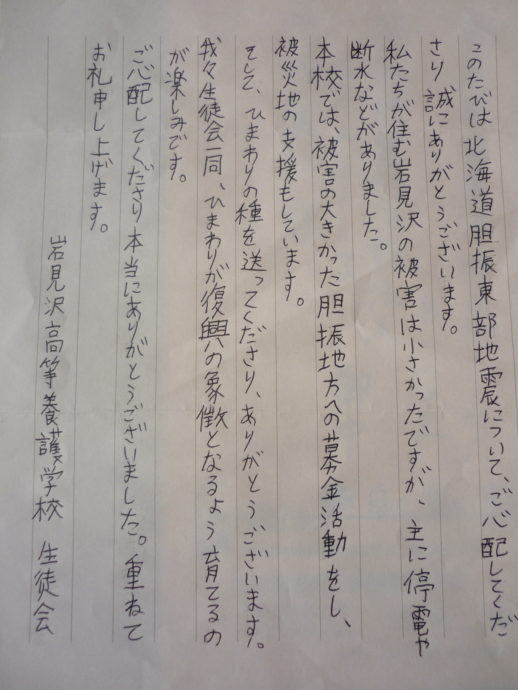 このたびは北海道胆振東部地震について、ご心配してくだ
さり誠にありがとうございます。
私たちが住む岩見沢の被害は小さかったですが、主に停電や
断水などがありました。
本校では、被害の大きかった胆振地方への募金活動をし、
被災地の支援もしています。
そして、ひまわりの種を送ってくださり、ありがとうございます。
我々生徒会一同、ひまわりが復興の象徴となるよう育てるの
が楽しみです。
ご心配してくださり本当にありがとうございました。重ねて
お礼申し上げます。
岩見沢高等養護学校 生徒会